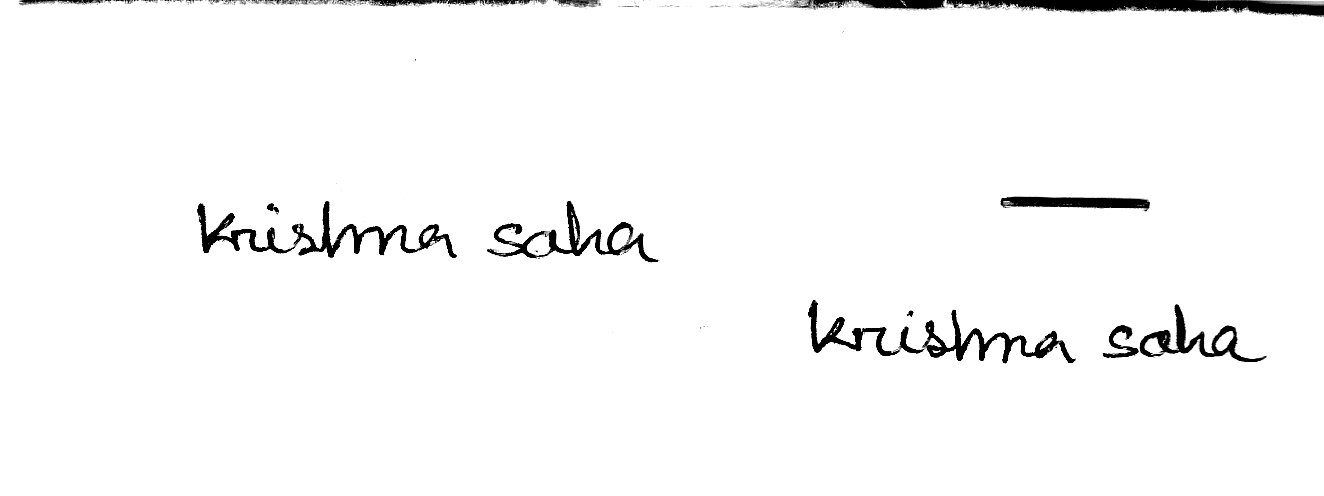 Krishna saha
Krishna saha